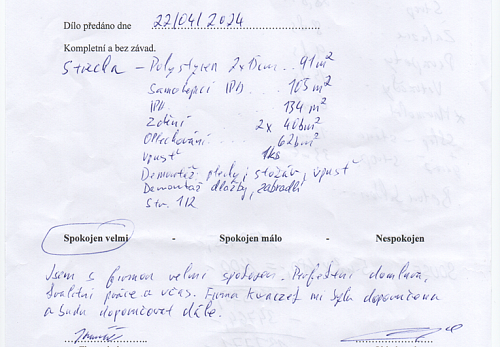 Dílo předáno dne 22/04/2024
Kompletní a bez závad.
Střecha - Polystyren 2x 15cm .. 91m²
Samolepící IPA ... 103 m²
IPA ... 134 m²
Zdění 2x 40bm²
Oplechování ... 62bm²
Vpusť 1ks
Demontáž plechy, stožár, vpusť
Demontáž dlažby, zábradlí
Str. 1/2
Spokojen velmi - Spokojen málo - Nespokojen
Jsem s firmou velmi spokojen. Perfektní domluva,
kvalitní práce a včas. Firma mi byla doporučena
a budu doporučovat dále.